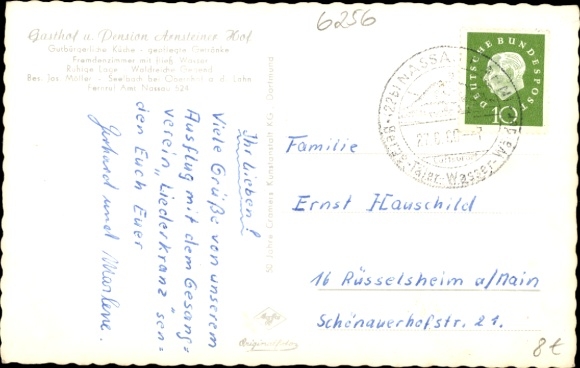 6256
Gasthof u. Pension Arnsteiner Hof
Gutbürgerliche Küche - gepflegte Getränke
Fremdenzimmer mit fließ. Wasser
Ruhige Lage Waldreiche Gegend
Bes. Jos Müller - Seelbach bei Obernhof a. d. Lahn
Fernruf Amt Nassau 524
Ihr lieben!
Viele Grüße von unserem
Ausflug mit dem Gesang=
verein „Liederkranz" sen=
den Euch Euer
Gerhard und Marlene.
50 Jahre Cramers Kunstanstalt KG., Dortmund
Agfa
Originalfoto
DEUTSCHE BUNDESPOST
10
(22b) NASSAU
Berge-Täler-Wasser-Wald
Familie
Ernst Hauschild
16 Rüsselsheim a/Main
Schönauerhofstr. 21.
8€